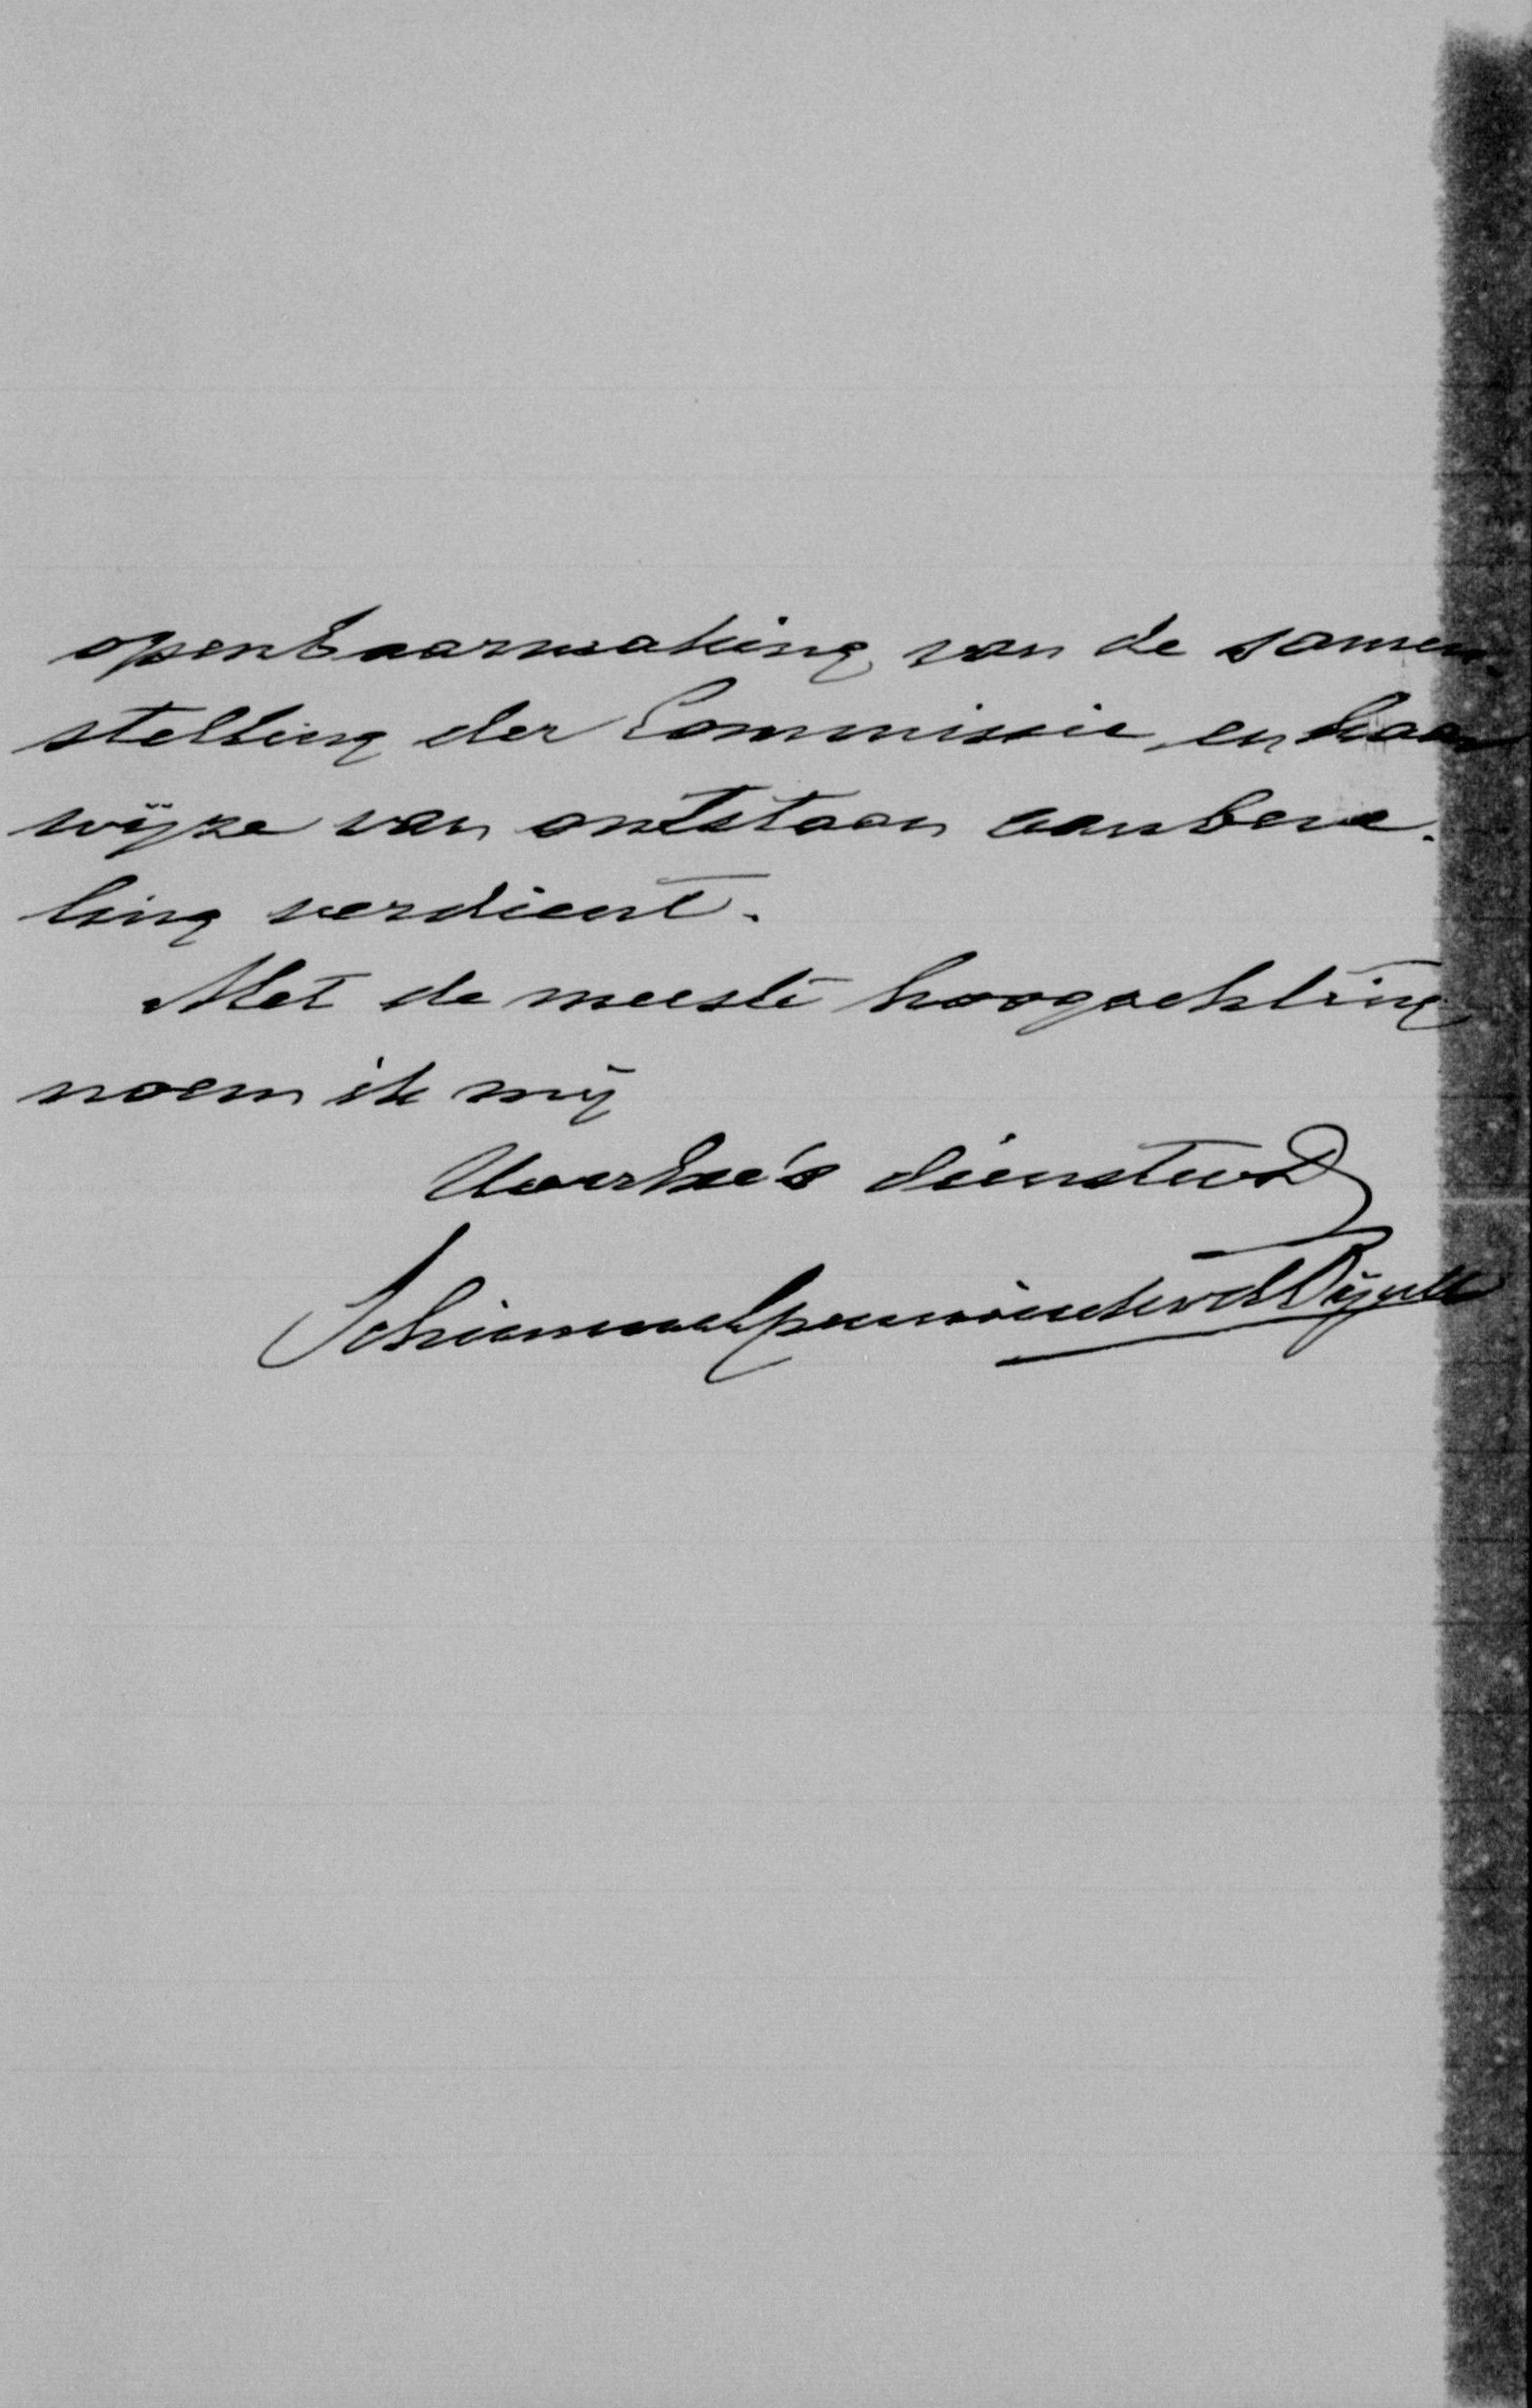 openbaarmaking van de samen-
stelling der Commissie, en haar
wijze van ontstaan aanbeve-
ling verdient.
Met de meeste hoogachting
noem ik mij
UwerExc's dienstw
Schimmelpenninckvd Oije